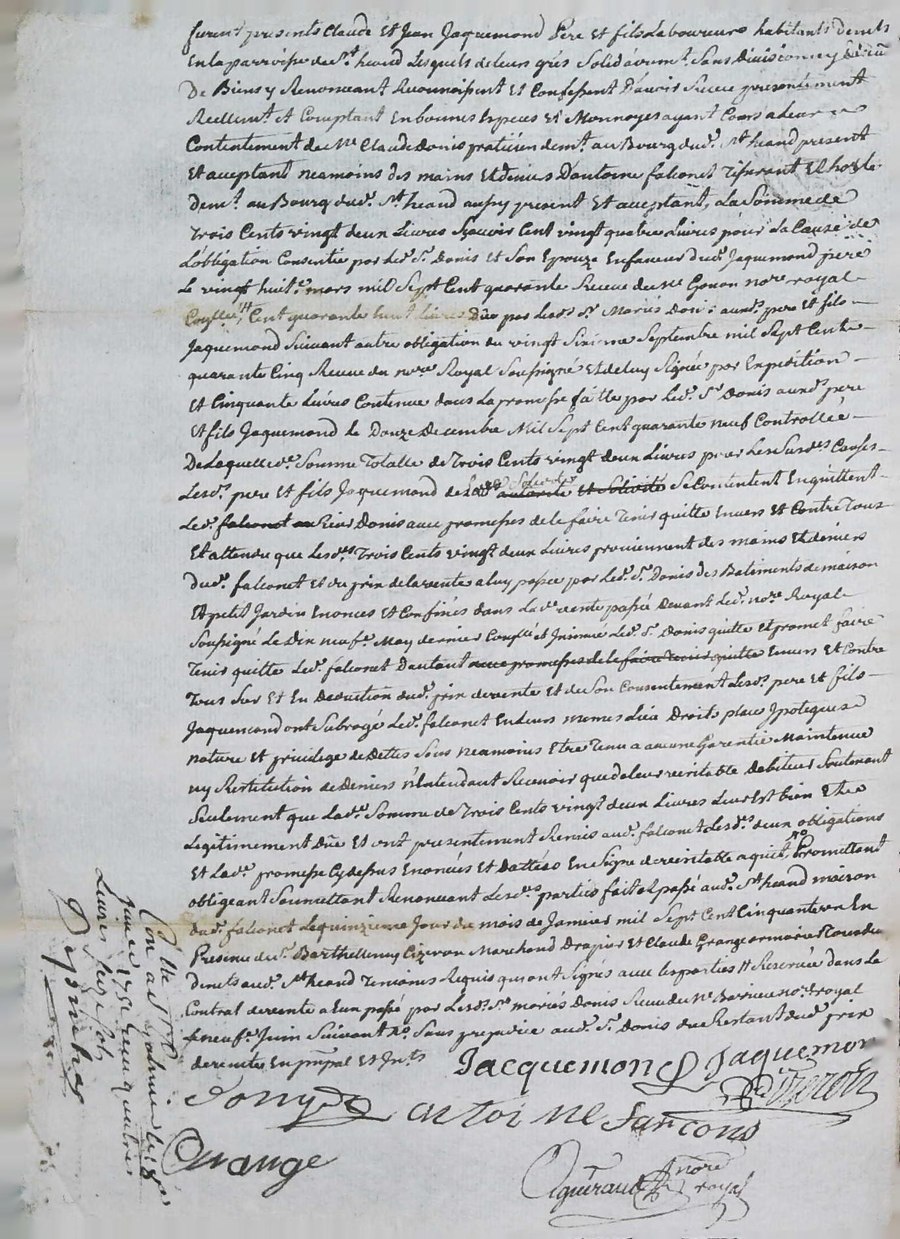 furent presents Claude Et Jean Jaquemond Pere Et fils Laboureurs habitants demts
En la parroisse de St. heand Lesquels de leurs grés Solidairemt. Sans Division ny
De Biens y Renonceant Reconnoissent Et Confessent D'avoir Receu presentement
Reellemt. Et Comptant En bonnes Especes Et Monnoyes ayant Cours a leur
Contentement de Me Claude Donis praticien demt. au Bourg dud. St heand present
Et aceptant neamoins des mains Et deniers D'antoine falconet Tisserant Et hoste
demt. au Bourg dud. St heand aussy present Et aceptant, La Somme de
Trois Cents vingt deux Livres Scavoir Cent vingt quatre Livres pour La Cause de
L'obligation Consentie par led. Sr. Donis Et Son Epouze En faveur dud. Jaquemond pere
Le vingt huite. mars mil Sept Cent quarante Receue du Me Gonon nore. royal
Cent quarante huit Livres Düe par lesd. Sr. Mariés Donis auxd. pere Et fils
Jaquemond Suivant autre obligation du vingt Sixieme Septembre mil Sept Cent
quarante Cinq Receue du nore Royal Soussigné Et de luy Signée par Expedition
Et Cinquante Livres Contenue dans La promesse faitte par led. Sr. Donis auxd. pere
Et fils Jaquemond le Douze Decembre Mil Sept Cent quarante neuf Controllée
De Laquelle de. Somme Totalle de Trois Cents vingt deux Livres pour Les Susdes Causes
Lesd. pere Et fils Jaquemond Se Contentent En quittent
Led. falconet Sieur Donis avec promesses de le faire Tenir quitte Envers Et Contre Tous
Et attendu que Lesdes Trois Cents vingt deux Livres proviennent des mains Et deniers
dud. falconet Et du prix de la vente a luy passée par Led. Sr. Donis des Batiments de maison
Et petit Jardin Enoncés Et Confinés dans La de vente passée Devant Led. nore. Royal
Soussigné Le Dix neufe. May dernier Conllé et Insinué Led. Sr. Donis quitte et promet faire
Tenir quitte Led. falconet D'autant avec promesses de le faire Tenir quitte Envers Et Contre
Tous Sur Et En Deduction dud. prix de vente Et de Son Consentement Lesd. pere Et fils
Jaquemond ont Subrogé Led. falconet En Leurs mêmes Lieu Droits place Ipoteques
nature Et privilege de Dettes Sans neamoins Etre Tenu a aucune Garentie Maintenue
ny Restitution de Deniers N'Entendant Recevoir que de leur veritable Debiteur Soutenant
Seulement que Lade. Somme de Trois Cents vingt deux Livres Leur Est bien Et
Legitimement Düe Et ont presentement Remis aud. falconet Lesdes. deux obligations
Et Lade. promesse Cy dessus Enoncés Et Dattées En Signe de veritable aquit, Promettant
obligeant Soumettant Renonceant Lesdes parties fait et passé aud. St heand maison
dud. falconet Le quinzieme Jour du mois de Janvier mil Sept Cent Cinquante un En
Presence de Sr. Barthellemy Cizeron Marchand Drapier Et Claude Grange
demts aud. St heand Temoins Requis qui ont Signés avec les parties Reservée dans Le
Contrat de vente a Eux passé par Lesd. Sr. mariés Donis Receu du Me Barrieu nore. royal
Le neufe. Juin Suivant Sans prejudice aud. Sr. Donis du Restant dud. prix
de vente En prinpal Et Ints
Jacquemond Jaquemon
Donys antoine farcono Cizeron
Grange
Aguiraud nore royal
Conlle a St
Janvier 1751 Receu quatre
Livres